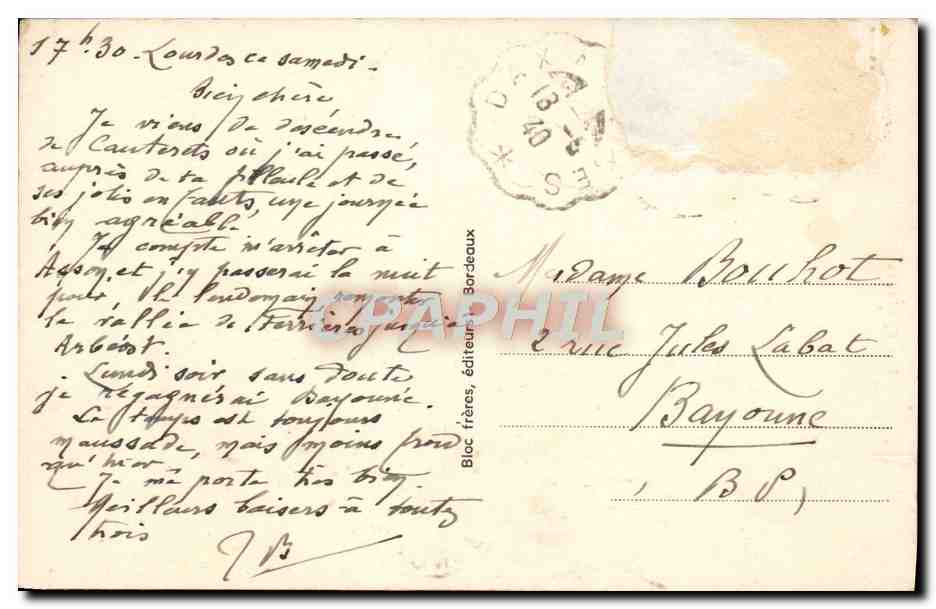 17h.30 - Lourdes ce samedi -
Bien chère
Je viens de descendre
de Cauterets où j'ai passé,
auprès de ta filleule et de
ses jolis enfants, une journée
bien agréable.
Je compte m'arrêter à
Asson, et j'y passerai la nuit
pour, le lendemain, remonter
la vallée de Ferrières jusqu'à
Arbéost.
Lundi soir sans doute
je regagnerai Bayonne.
Le temps est toujours
maussade, mais moins froid
qu'hier.
Je me porte très bien.
Meilleurs baisers à toutes
trois
JB
Bloc frères, éditeurs, Bordeaux
DAX
18
40
Madame Bouhot
2 rue Jules Labat
Bayonne
B P,
CPAPHIL